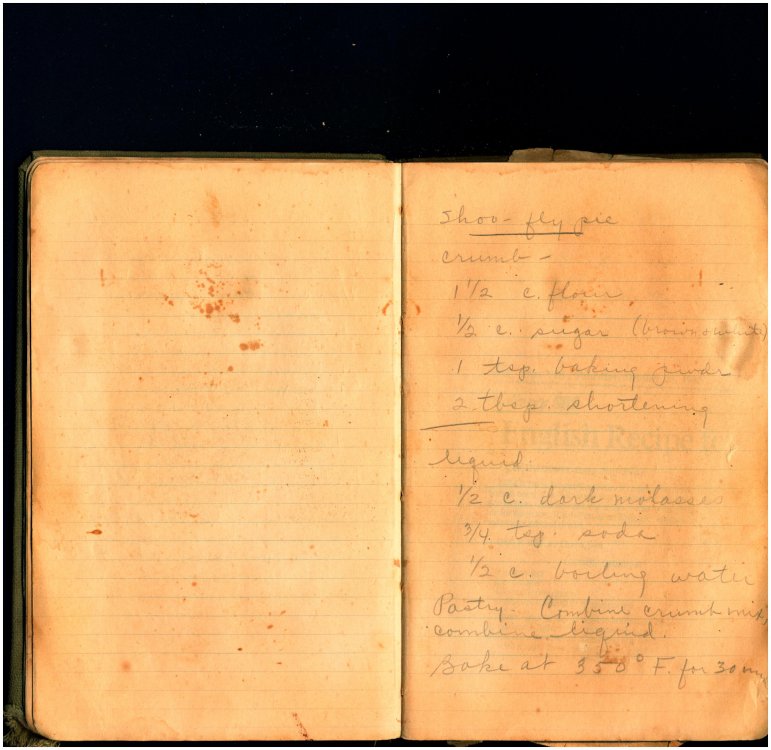 Shoo-fly pie
crumb -
1 1/2 c. flour
1/2 c. sugar (brown & white)
1 tsp. baking powdr
2 tbsp. shortening
English Recipe
liquid.
1/2 c. dark molasses
3/4 tsp. soda
1/2 c. boiling water
Pastry - Combine crumb mix,
combine liquid.
Bake at 350° F. for 30 min